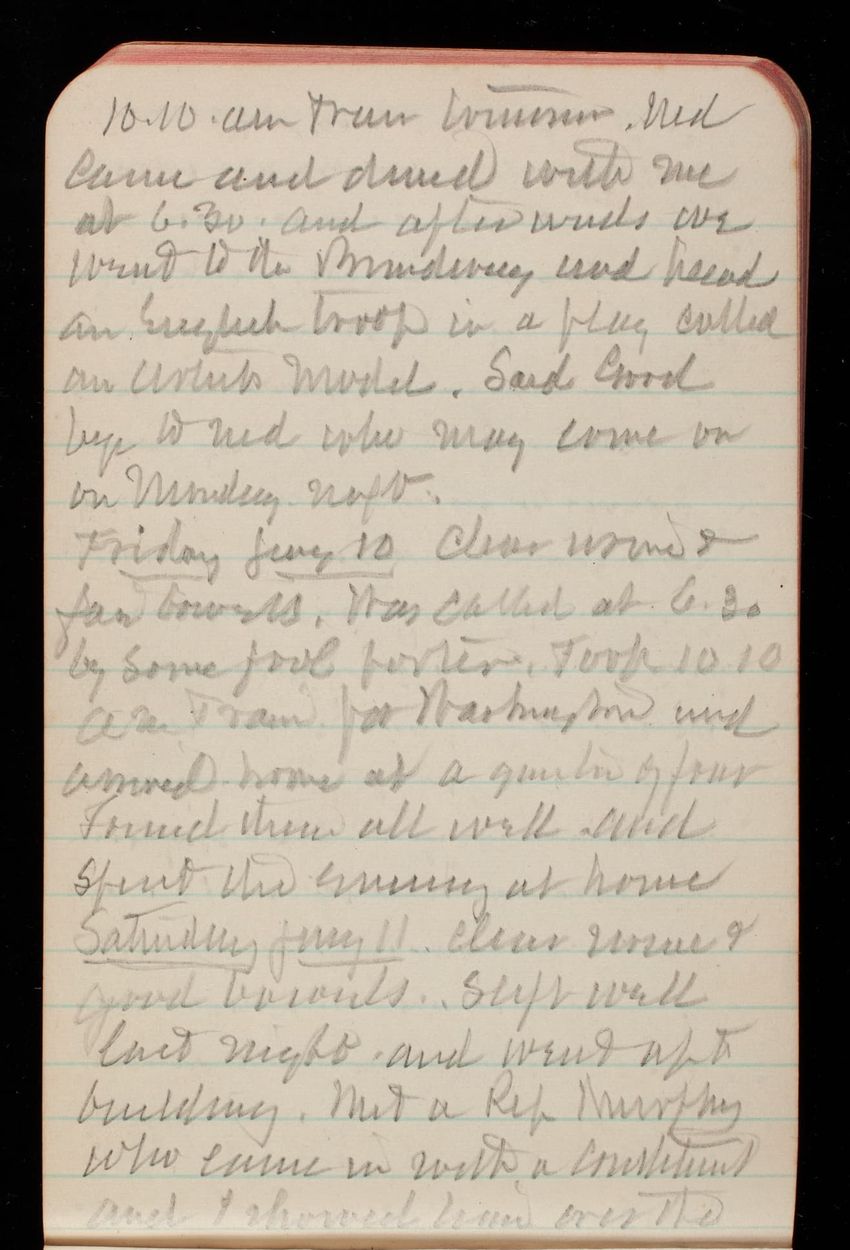 10.10 am Train tomorrow. Ned
came and dined with me
at 6.30. and afterwards we
went to the Broadway and heard
an English troop in a play called
an Artists Model. Said Good
bye to Ned who may come on
on Monday next.
Friday Jany 10 Clear &
fair bowels. Was called at 6.30
by some fool porter. Took 10 10
am Train for Washington and
arrived home at a quarter of four
Found them all well and
spent the evening at home
Saturday Jany 11. clear &
good bowels. Slept well
last night and went up to
building. Met a Rep Murphy
who came in with a constituent
and I showed him over the